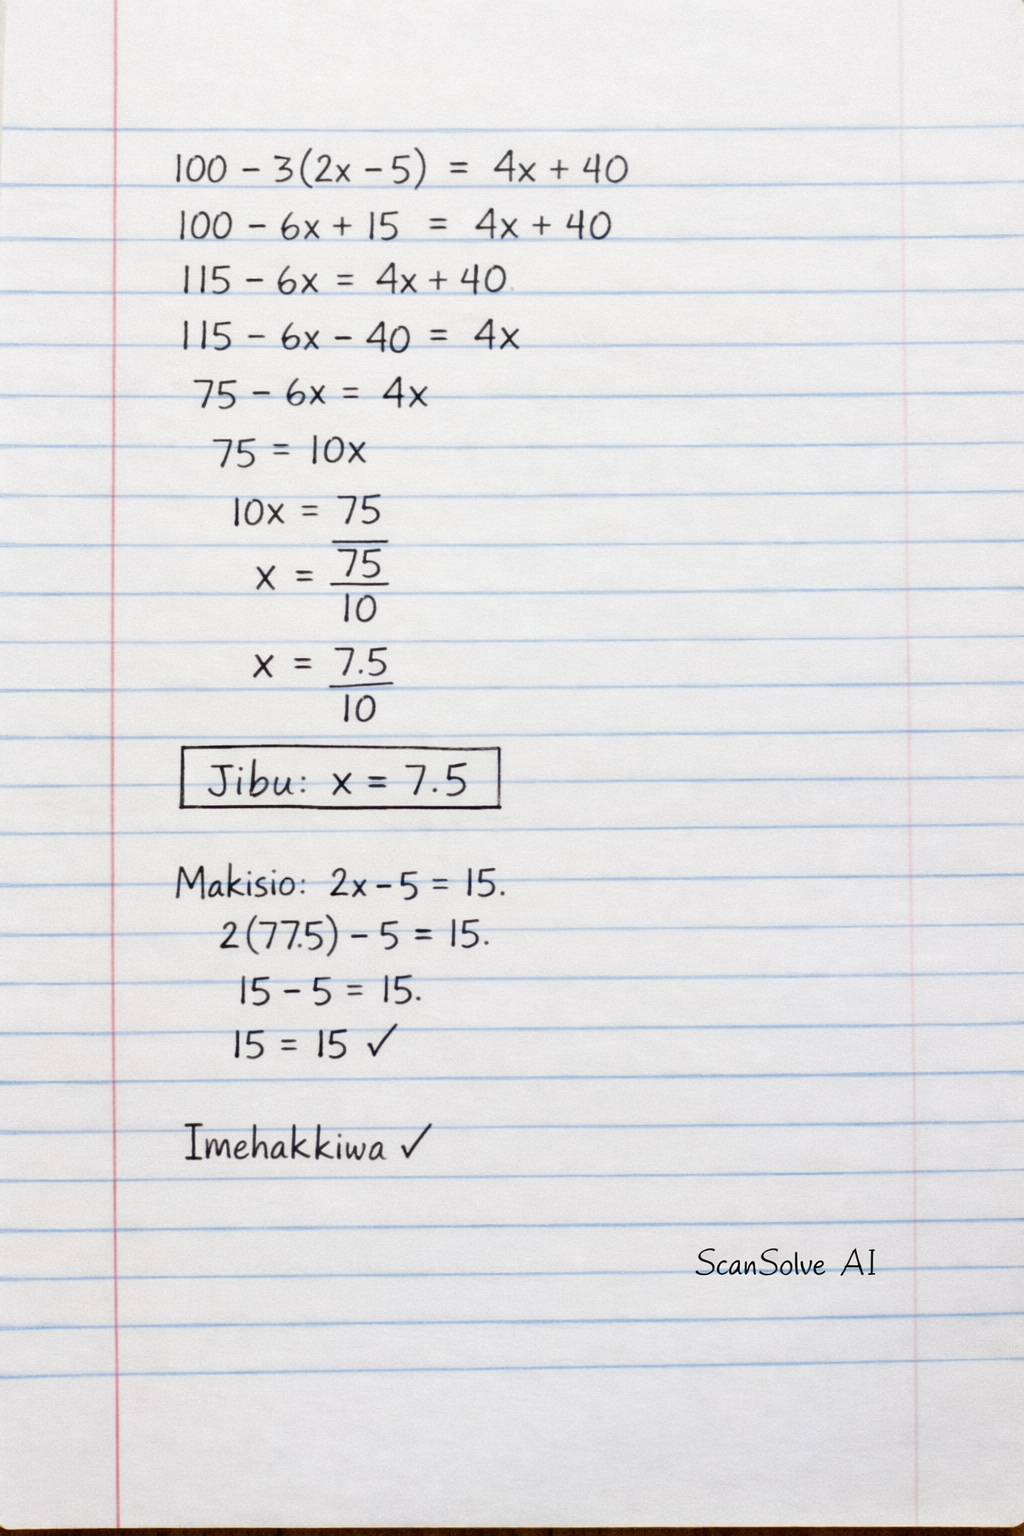 100 - 3(2x - 5) = 4x + 40
100 - 6x + 15 = 4x + 40
115 - 6x = 4x + 40.
115 - 6x - 40 = 4x
75 - 6x = 4x
75 = 10x
10x = 75
x = 75/10
x = 7.5/10
Jibu: x = 7.5
Makisio: 2x - 5 = 15.
2(77.5) - 5 = 15.
15 - 5 = 15.
15 = 15 ✓
Imehakkiwa ✓
ScanSolve AI